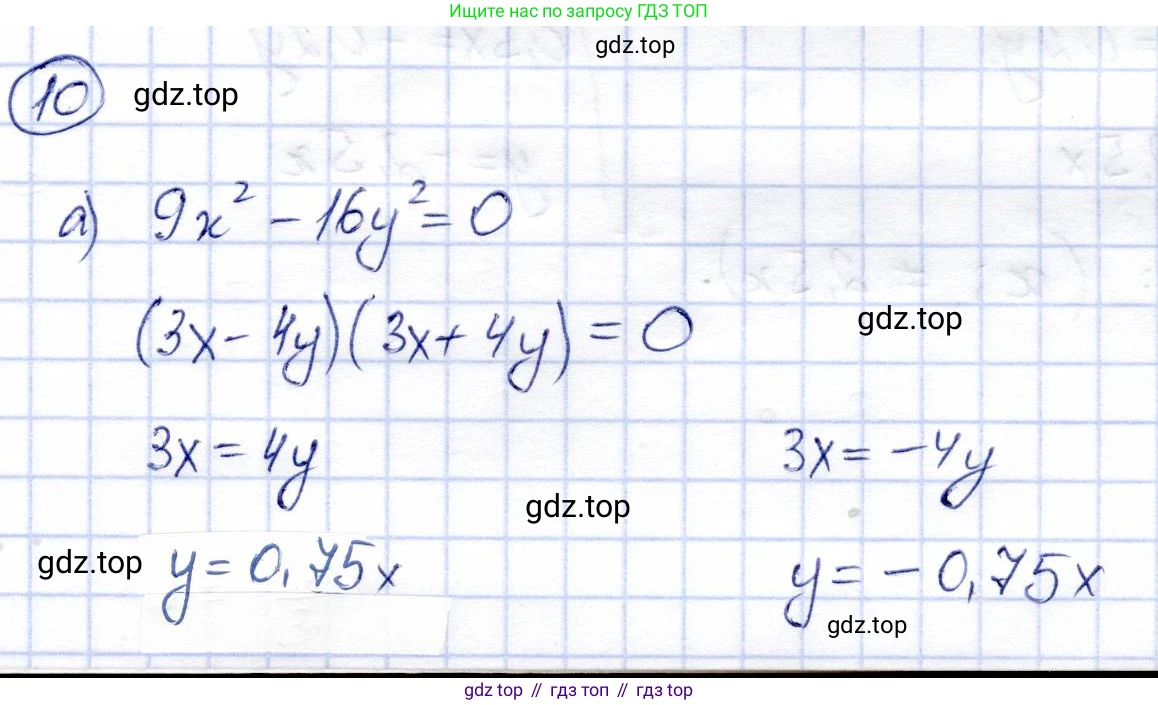 Ищите нас по запросу ГДЗ ТОП
gdz.top
10 gdz.top
а) 9x² - 16y² = 0
(3x - 4y)(3x + 4y) = 0
gdz.top
3x = 4y 3x = -4y
gdz.top
gdz.top y = 0,75x y = -0,75x
gdz.top
gdz top // гдз топ // гдз top